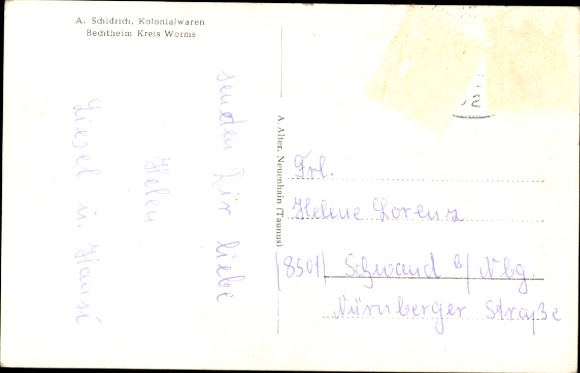 A. Schidrich, Kolonialwaren
Bechtheim Kreis Worms
senden Dir liebe
Helen
Liesel u. Hansi
A. Alter, Neuenhain (Taunus)
Frl.
Helene Lorenz
(8501) Schwand b/ Nbg.
Nürnberger Straße